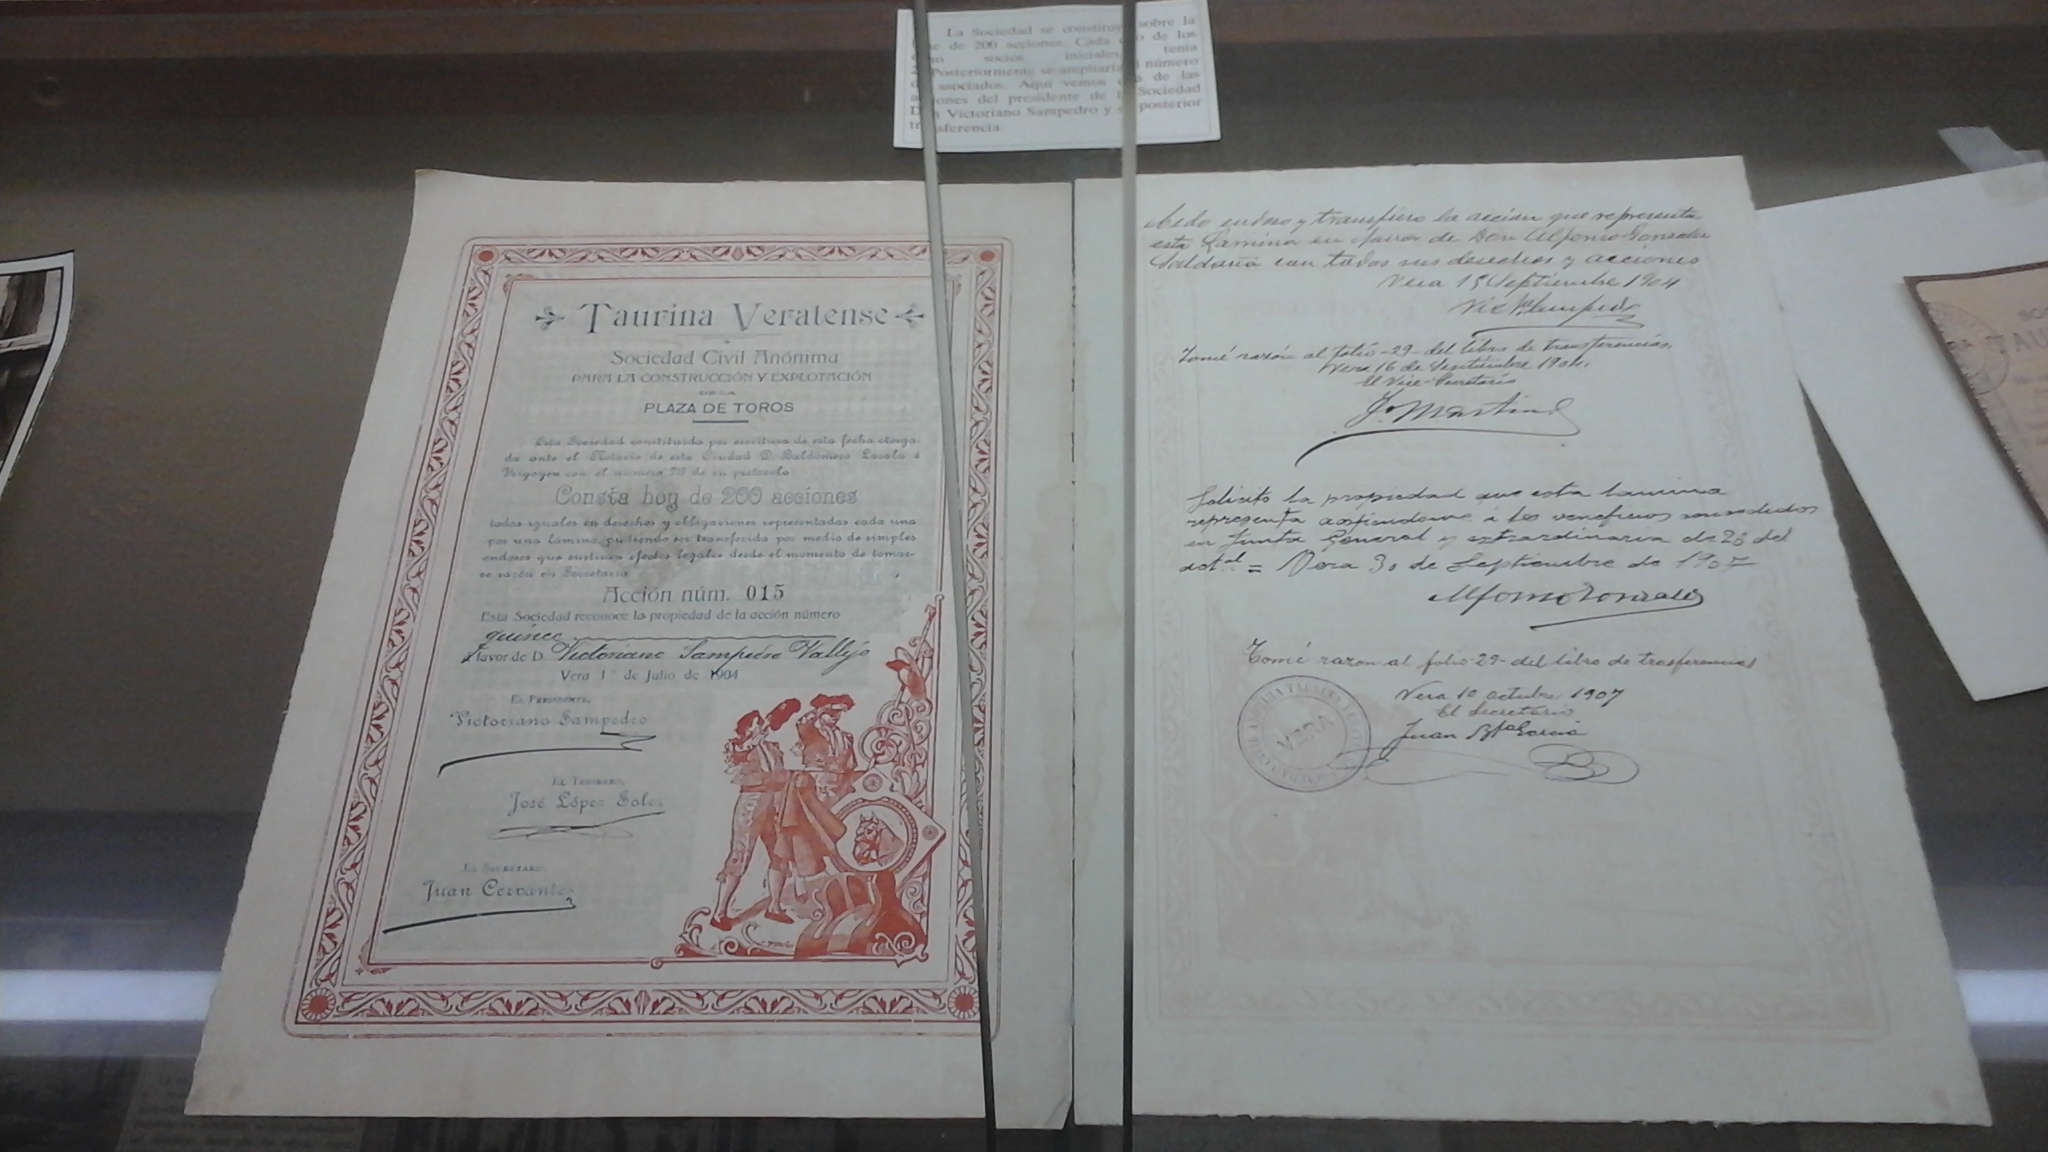 La Sociedad se constituye sobre la
de 200 acciones. Cada de los
socios iniciales tenía
Posteriormente se ampliaría número
asociados. Aquí vemos de las
acciones del presidente de la Sociedad
Don Victoriano Sampedro y su posterior
transferencia.
Taurina Veratense
Sociedad Civil Anónima
PARA LA CONSTRUCCIÓN Y EXPLOTACIÓN
DE LA
PLAZA DE TOROS
Esta Sociedad constituida por escritura de esta fecha otorga-
da ante el Notario de esta Ciudad D. Baldomero
con el número 78 de su protocolo
Consta hoy de 200 acciones
todas iguales en derechos y obligaciones representadas cada una
por una lámina, pudiendo ser transferida por medio de simples
endosos que surtirán efectos legales desde el momento de tomar-
se razón en Secretaría
Acción núm. 015
Esta Sociedad reconoce la propiedad de la acción número
quince
á favor de D. Victoriano Sampedro Vallejo
Vera 1º de Julio de 1904
EL PRESIDENTE,
Victoriano Sampedro
EL TESORERO,
José López Soler
EL SECRETARIO,
Juan Cervantes
Cedo endoso y transfiero la acción que representa
esta Lamina en favor de Don Alfonso Gonzalez
Saldaña con todos sus derechos y acciones
Vera 15 Septiembre 1904
Vic Sampedro
Tomé razón al folio -29- del libro de transferencias.
Vera 16 de Septiembre 1904.
El Vice-Secretario
Martinez
Solicito la propiedad que esta lamina
representa á los veneficios
en Junta General y extraordinaria de 23 del
actal = Vera 30 de Septiembre de 1907
Alfonso Gonzalez
Tomé razon al folio -29- del libro de trasferencias
Vera 1º octubre 1907
El Secretario
Juan Bta Garcia
VERA